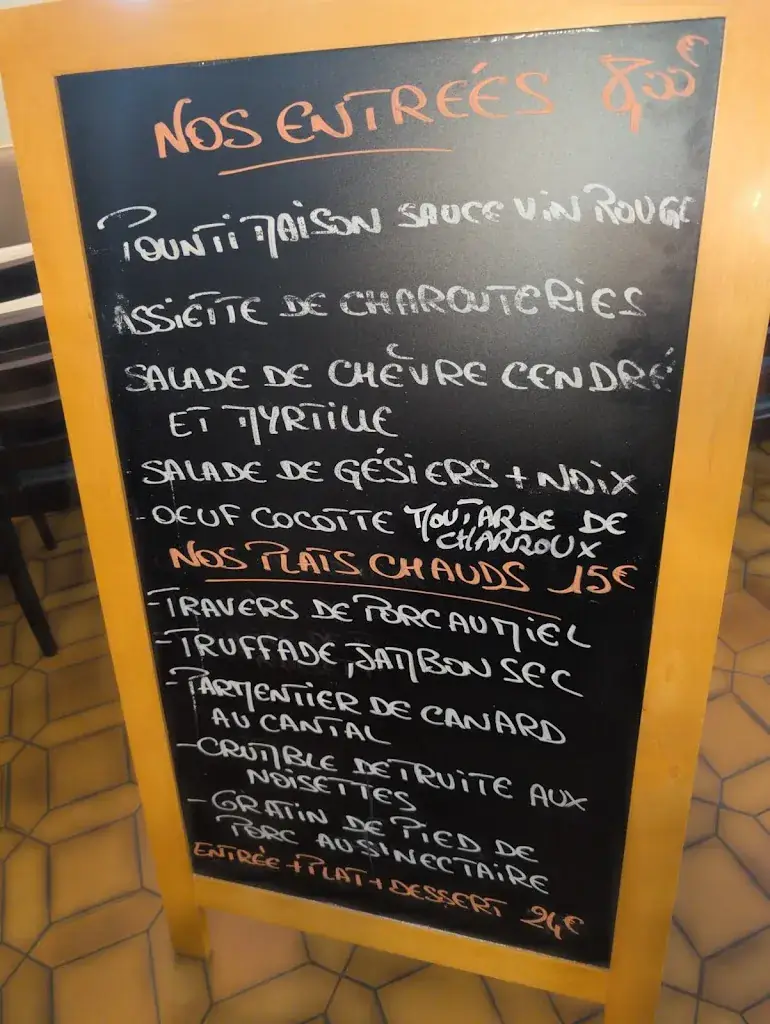 NOS ENTREÉS 8,00€
POUNTI MAISON SAUCE VIN ROUGE
ASSIETTE DE CHARCUTERIES
SALADE DE CHÈVRE CENDRÉ
ET MYRTILLE
- SALADE DE GÉSIERS + NOIX
- OEUF COCOTTE MOUTARDE DE
CHARROUX
NOS PLATS CHAUDS 15€
- TRAVERS DE PORC AU MIEL
- TRUFFADE, JAMBON SEC
- PARMENTIER DE CANARD
AU CANTAL
- CRUMBLE DE TRUITE AUX
NOISETTES
- GRATIN DE PIED DE
PORC AU SINECTAIRE
ENTRÉE + PLAT + DESSERT 24€